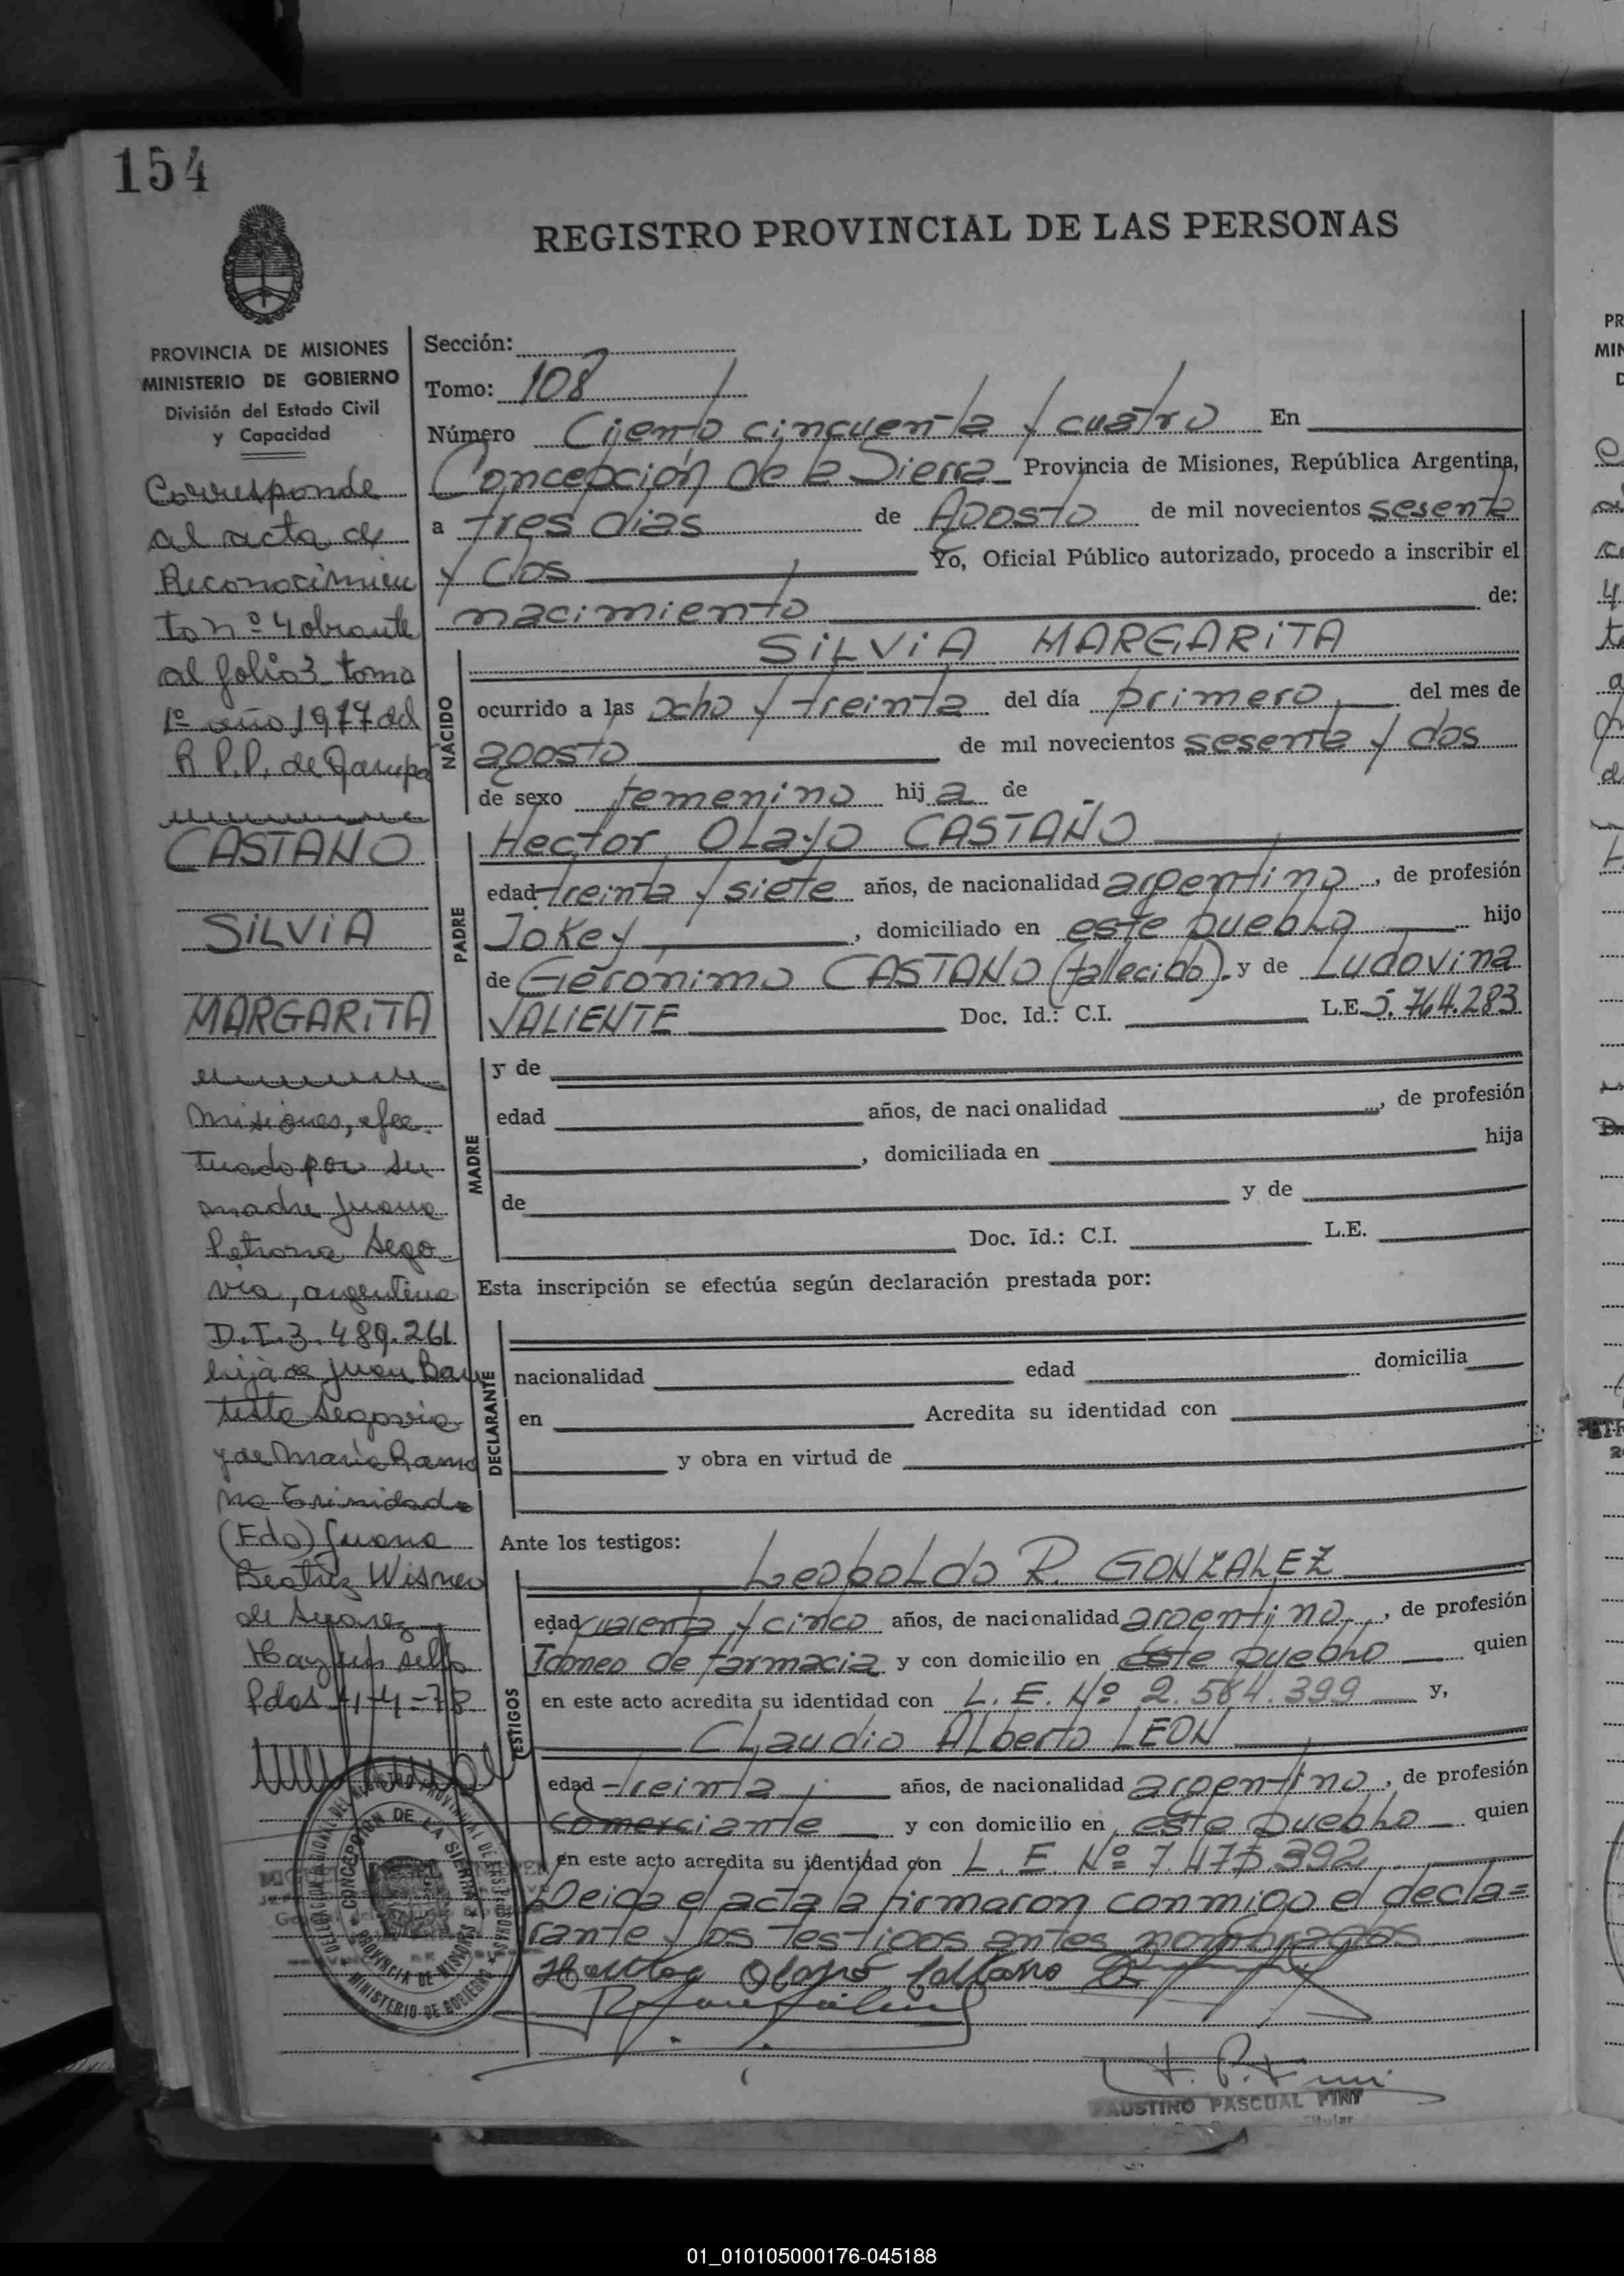 154
REGISTRO PROVINCIAL DE LAS PERSONAS
PROVINCIA DE MISIONES
MINISTERIO DE GOBIERNO
División del Estado Civil
y Capacidad
Corresponde
al acta de
Reconocimien
to nº 4 obrante
al folio 3 tomo
1º año 1977 del
R.P.P. de Garupa
CASTANO
SiLViA
MARGARiTA
Misiones, efec-
tuado por su
madre Juana
Petrona Sego
via, argentina
D.I. 3.489.261
hija de Juan Bau
tista Segovia
y de María Ramo
na Trinidad
(Fdo) Juana
Beatriz Wisner
de Suarez
Hay un sello
Pdas 4-4-78
Sección:
Tomo: 108
Número Ciento cincuenta y cuatro En
Concepción de la Sierra Provincia de Misiones, República Argentina,
a tres dias de Agosto de mil novecientos sesenta
y dos Yo, Oficial Público autorizado, procedo a inscribir el
nacimiento de:
NACIDO
SiLViA MARGARiTA
ocurrido a las ocho y treinta del día primero del mes de
agosto de mil novecientos sesenta y dos
de sexo femenino hija de
PADRE
Hector OLayo CASTAÑO
edad treinta y siete años, de nacionalidad argentino, de profesión
Jokey, domiciliado en este pueblo hijo
de Gerónimo CASTANO (fallecido) y de Ludovina
VALIENTE Doc. Id.: C.I. L.E. 5.764.283
MADRE
y de
edad años, de nacionalidad, de profesión
, domiciliada en hija
de y de
Doc. Id.: C.I. L.E.
Esta inscripción se efectúa según declaración prestada por:
DECLARANTE
nacionalidad edad domicilia
en Acredita su identidad con
y obra en virtud de
Ante los testigos:
TESTIGOS
Leopoldo R. GONZALEZ
edad cuarenta y cinco años, de nacionalidad argentino, de profesión
Idoneo de farmacia y con domicilio en este pueblo quien
en este acto acredita su identidad con L. E. Nº 2.564.399 y,
Claudio ALberto LEON
edad treinta años, de nacionalidad argentino, de profesión
comerciante y con domicilio en este pueblo quien
en este acto acredita su identidad con L. E. Nº 7.475.392
Leida el acta la firmaron conmigo el decla=
rante y los testigos antes nombrados
Hector Olayo Castano
DELEGACION REGIONAL DEL REGISTRO PROVINCIAL DE LAS PERSONAS
CONCEPCION DE LA SIERRA
PROVINCIA DE MISIONES
MINISTERIO DE GOBIERNO
FAUSTINO PASCUAL FINI
Titular
01_010105000176-045188